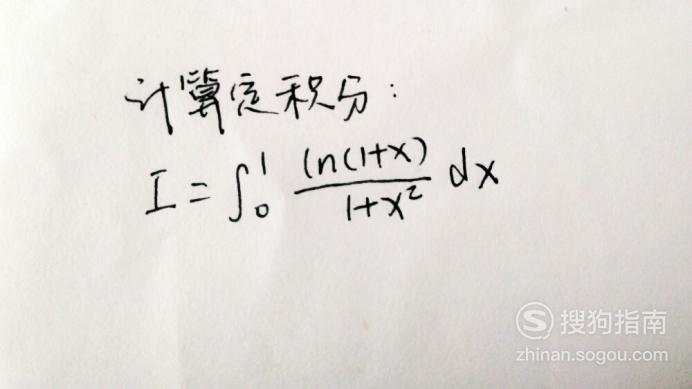 计算定积分:
I = ∫₀¹ ln(1+x)/(1+x²) dx
搜狗指南
zhinan.sogou.com